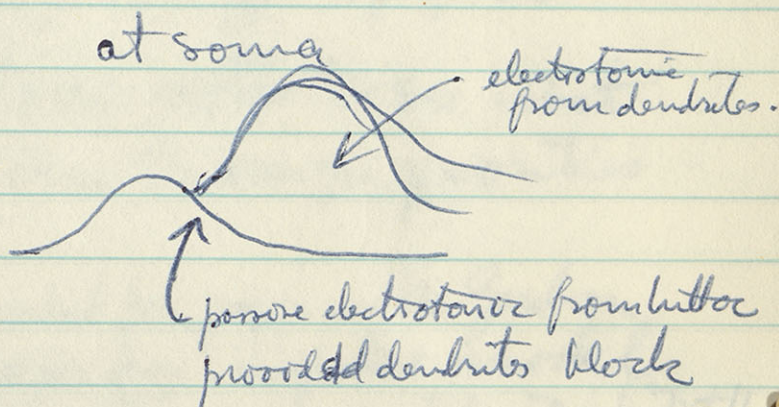 at soma
electrotonic
from dendrites.
passive electrotonic from hilloc
provided dendrites block